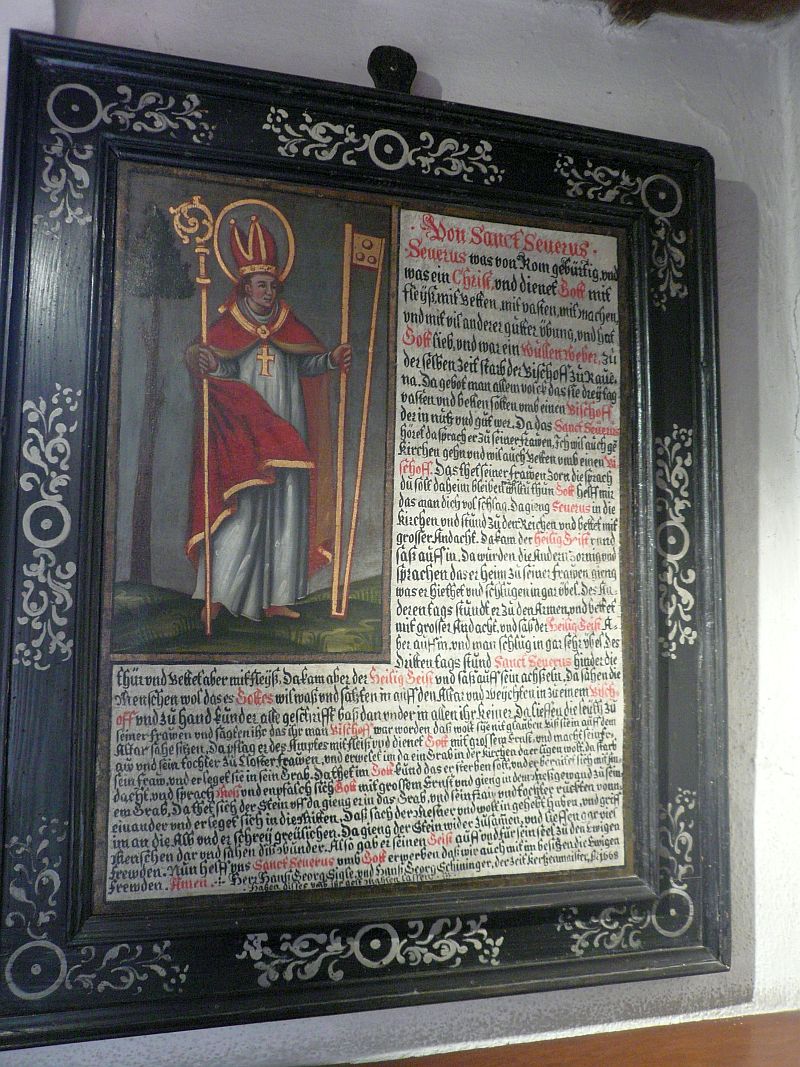 Von Sanct Seuerus.
Seuerus was von Rom gebürtig, vnd
was ein Christ, vnd dienet Gott mit
fleÿß, mit betten, mit vasten, mit wachen,
vnd mit vil anderer gutter übung, vnd hat
Gott lieb, vnd war ein Wüllen Weber, zu
der selben zeit starb der Bischoff zu Raue-
na. Da gebot man allem volck das sie dreÿ tag
vasten vnd betten solten vmb einen Bischoff
der in nutz vnd gut wer. Da das Sanct Seuerus
höret da sprach er zu seiner frawen, Ich wil auch gē
Kirchen gehn vnd wil auch betten vmb einen Bi
schoff. Das thet seiner frawen zorn die sprach
du solt daheim bleiben thun Gott helff mir
das man dich vol schlag. Da gieng Seuerus in die
Kirchen vnd stund zu den Reichen vnd bettet mit
grosser Andacht. Da kam der heilig Geist vnd
saß auff in. Da wurden die Andern zornig vnd
sprachen das er heim zu seiner frawen gieng
was er hie thet vnd schlugen in gar übel. Des An
deren tags stundt er zu den Armen, vnd bettet
mit grosser Andacht, vnd saß der Heilig Geist A-
ber auff in, vnd man schlug in gar sehr übel. Des
Dritten tags stund Sanct Seuerus hinder die
thür vnd bettet aber mit fleÿß. Da kam aber der Heilig Geist vnd saß auff sein achseln. Da sahen die
Menschen wol das es Gottes wil waß vnd satzten in auff den Altar vnd weichten in zu einem Bisch-
off vnd zu hand kunder alle geschrifft baß dan vnder in allen ihr keiner. Da lieffen die leuth zu
seiner frawen vnd sagten ihr das ihr man Bischoff war worden das wolt sye nit glauben biß sie in auff dem
Altar sahe sitzen. Da pflag er des Amptes mit fleiß vnd dienet Gott mit grossem Ernst, vnd macht sein fr-
aw vnd sein tochter zu Closter frawen, vnd erwelet im da ein Grab in der Kirchen da er ligen wolt, da starb
sein fraw, vnd er leget sie in sein Grab. Da thet im Gott kund das er sterben solt, vnd er bereitet sich mit An-
dacht, vnd sprach Meß vnd empfalch sich Gott mit grossem Ernst vnd gieng in dem Meßgewand zu sein-
em Grab, Da thet sich der Stein vff da gieng er in das Grab, vnd sein fraw vnd tochter ruckten vonn-
einander vnd er leget sich in die Mitten. Daß sach der Mesner vnd wolt in gehebt haben, vnd griff
im an die Alb vnd er schrey greülichen. Da gieng der Stein wider zusamen, vnd lieffen gar viel
Menschen dar vnd sahen diß Wunder. Also gab er seinen Geist auff vnd für sein seel zu den Ewigen
frewden. Nun helff vns Sanct Seuerus vmb Gott erwerben das wir auch mit im besitzen die Ewigen
frewden. Amen. Herr Hanß Georg Sigle, vnd Hanß Georg Schininger, der Zeit Kirchenmaister, A. 1668
haben diseß machen lassen.